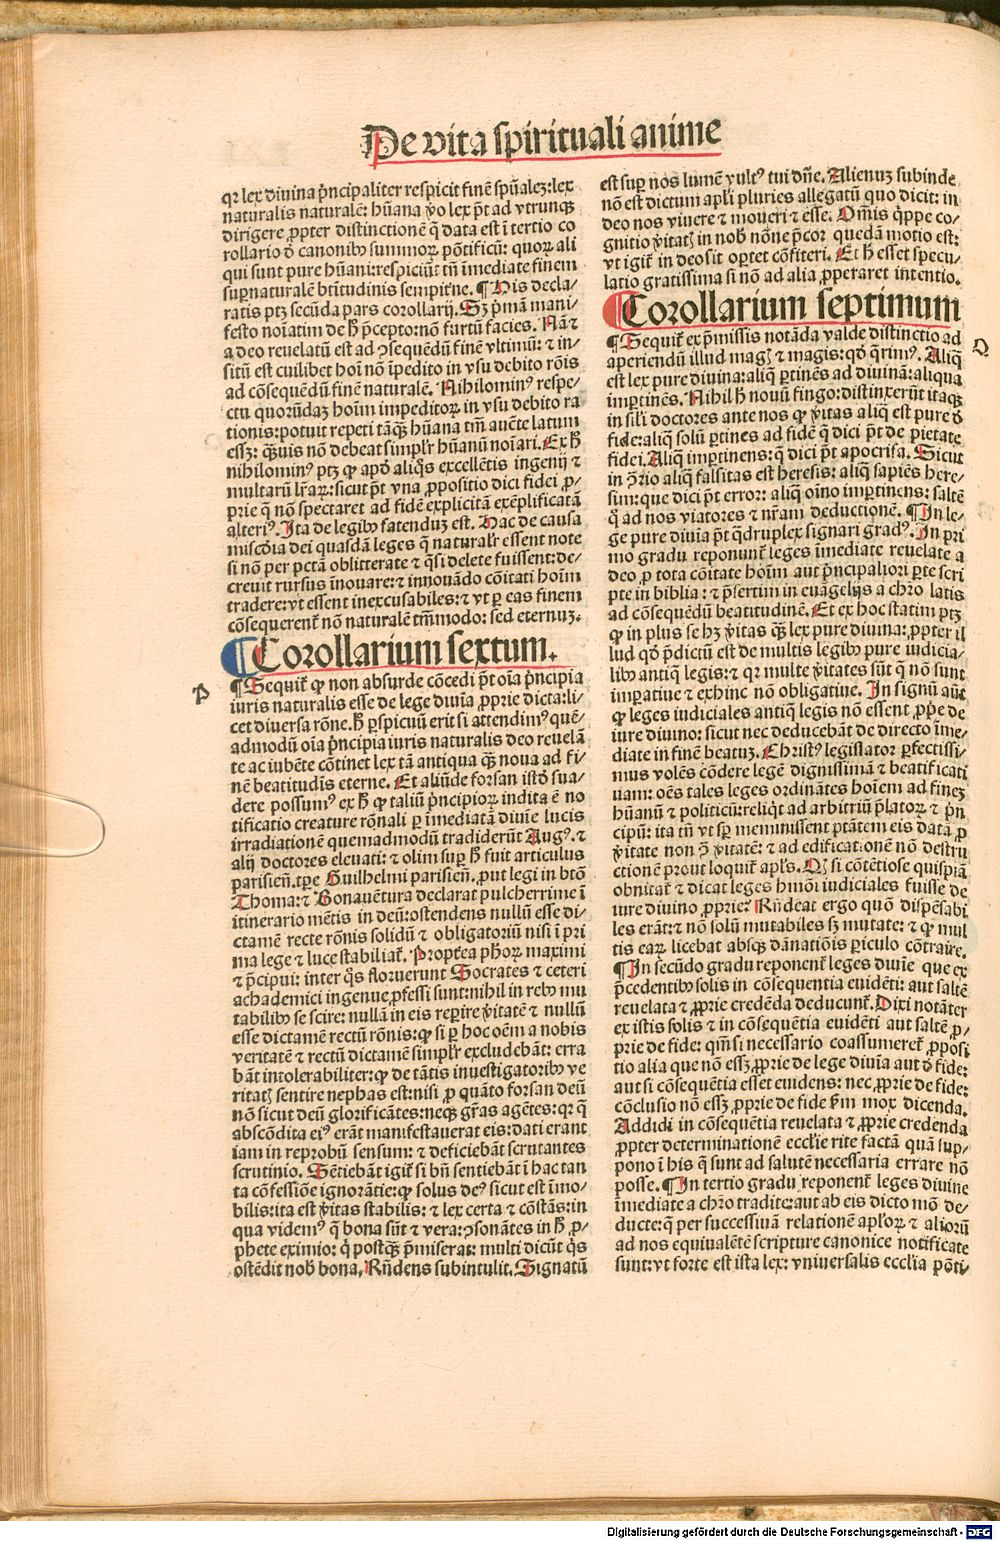 De vita spirituali anime
qꝛ lex diuina p̄ncipaliter respicit finē spūalez: lex
naturalis naturalē: hūana ꝟo lex p̄t ad vtrunqꝫ
dirigere ꝓpter distinctionē q̄ data est ī tertio co
rollario ꝺ̄ canonibꝰ summoꝝ pōtificū: quoꝝ ali
qui sunt pure hūani: respiciūt tn̄ īmediate finem
suꝑnaturalē bt̄itudinis sempit̄ne. ¶ His decla⸗
ratis ptꝫ secūda pars corollarij. Sꝫ p̄mā mani⸗
festo noīatim de h̄ p̄cepto: nō furtū facies. Nā ⁊
a deo reuelatū est ad ꝯsequēdū finē vltimū: ⁊ in⸗
situ est cuilibet hoī nō īpedito in vsu debito rōis
ad cōsequēdū finē naturalē. Nihilominꝰ respe⸗
ctu quorūdaꝫ hoīm impeditoꝝ in vsu debito ra
tionis: potuit repeti tāqꝫ hūana tm̄ auc̄te latum
essꝫ: qꝫuis nō debeat simplr̄ hūanū noīari. Ex h̄
nihilominꝰ ptꝫ ꝙ apd̄ aliq̄s excellētis ingenij ⁊
multarū lr̄aꝝ: sicut p̄t vna ꝓpositio dici fidei ꝓ⸗
prie q̄ nō spectaret ad fidē explicitā exēplificatā
alteriꝰ. Ita de legibꝰ fatenduꝫ est. Hac de causa
misc̄dia dei quasdā leges q̄ naturalr̄ essent note
si nō per pctā oblitterate ⁊ q̄si delete fuissent: de⸗
creuit rursus īnouare: ⁊ innouādo cōitati hoīm
tradere: vt essent inexcusabiles: ⁊ vt ꝑ eas finem
cōsequerent̄ nō naturalē tm̄modo: sed eternuꝫ.
Corollarium sextum.
P
¶ Sequit̄ ꝙ non absurde cōcedi p̄t oīa p̄ncipia
iuris naturalis esse de lege diuīa ꝓprie dicta: li⸗
cet diuersa rōne. h̄ ꝑspicuū erit si attendimꝰ quē⸗
admodū oīa p̄ncipia iuris naturalis deo reuelā
te ac iubēte cōtinet lex tā antiqua qꝫ noua ad fi⸗
nē beatitudīs eterne. Et aliūde forsan istd̄ sua⸗
dere possumꝰ ex h̄ ꝙ taliū p̄ncipioꝝ indita ē no
tificatio creature rōnali ꝑ īmediatā diuīe lucis
irradiationē quemadmodū tradiderūt Augꝰ. ⁊
alij doctores eleuati: ⁊ olim suꝑ h̄ fuit articulus
parisieñ. tꝑe Guilhelmi parisieñ. put legi in btō
Thoma: ⁊ Bonauētura declarat pulcherrime ī
itinerario mētis in deū: ostendens nullū esse di⸗
ctamē recte rōnis solidū ⁊ obligatoriū nisi ī pri
ma lege ⁊ luce stabiliat̄. Propt̄ea ph̄oꝝ maximi
⁊ p̄cipui: inter q̄s floruerunt Socrates ⁊ ceteri
achademici ingenue ꝓfessi sunt: nihil in rebꝰ mu
tabilibꝰ se scire: nullā in eis reꝑire ꝟitatē ⁊ nullū
esse dictamē rectū rōnis: ꝙ si ꝑ hoc oēm a nobis
veritatē ⁊ rectū dictamē simplr̄ excludebāt: erra
bāt intolerabiliter: ꝙ de tātis inuestigatoribꝰ ve
ritatꝭ sentire nephas est: nisi ꝓ quāto forsan deū
nō sicut deū glorificātes: neqꝫ gr̄as agētes: qꝛ q̄
abscōdita eiꝰ erāt manifestauerat eis: dati erant
iam in reprobū sensum: ⁊ deficiebāt scrutantes
scrutinio. Sētiebāt igit̄ si bn̄ sentiebāt ī hac tan
ta cōfessiōe ignorātie: ꝙ solus deꝰ sicut est īmo⸗
bilis: ita est ꝟitas stabilis: ⁊ lex certa ⁊ cōstās: in
qua videmꝰ q̄ bona sūt ⁊ vera: ꝯsonātes in h̄ ꝓ⸗
phete eximio: q̇ postqꝫ p̄miserat: multi dicūt q̄s
ostēdit nob̄ bona. Rn̄dens subintulit. Signatū
est suꝑ nos lumē vultꝰ tui dn̄e. Alienuꝫ subinde
nō est dictum apl̄i pluries allegatū quo dicit: in
deo nos viuere ⁊ moueri ⁊ esse. Om̄is q̄ppe co⸗
gnitio ꝟitatꝭ in nob̄ nōne p̄coꝛ quedā motio est:
vt igit̄ in deo sit oꝑtet cōfiteri. Et h̄ esset specu⸗
latio gratissima si nō ad alia ꝓperaret intentio.
Corollarium septimum
Q
¶ Sequit̄ ex p̄missis notāda valde distinctio ad
aperiendū illud magꝭ ⁊ magis: qd̄ q̄rimꝰ. Aliq̄
est lex pure diuina: aliq̄ ꝑtinēs ad diuinā: aliqua
imꝑtinēs. Nihil h̄ nouū fingo: distinxerūt itaqꝫ
in sil̄i doctores ante nos ꝙ ꝟitas aliq̄ est pure ꝺ̄
fide: aliq̄ solū ꝑtines ad fidē q̄ dici p̄t de pietate
fidei. Aliq̄ imꝑtinens: q̄ dici p̄t apocrifa. Sicut
in ꝯ̄rio aliq̄ falsitas est heresis: aliq̄ sapiēs here⸗
sim: que dici p̄t error: aliq̄ oīno imꝑtinens: saltē
q̄ ad nos viatores ⁊ nr̄am deductionē. ¶ In le⸗
ge pure diuīa p̄t q̄druplex signari gradꝰ. In pri
mo gradu reponunt̄ leges īmediate reuelate a
deo ꝓ tota cōitate hoīm aut p̄ncipaliori ꝑte scri
pte in biblia: ⁊ p̄sertim in euāgelijs a chr̄o latis
ad cōsequēdū beatitudinē. Et ex hoc statim ptꝫ
ꝙ in plus se hꝫ ꝟitas qꝫ lex pure diuina: ꝓpter il
lud qd̄ p̄dictū est de multis legibꝰ pure iudicia⸗
libꝰ antiq̄ legis: ⁊ qꝛ multe ꝟitates sūt q̄ nō sunt
imꝑatiue ⁊ exhinc nō obligatiue. In signū aūt
ꝙ leges iudiciales antiq̄ legis nō essent ꝓp̄e de
iure diuino: sicut nec deducebāt̄ de directo īme⸗
diate in finē beatuꝫ. Christꝰ legislator ꝑfectissi⸗
mus volēs cōdere legē dignissimā ⁊ beatificati
uam: oēs tales leges ordinātes hoīem ad finēꝫ
hūanū ⁊ politicū: reliq̄t ad arbitriū p̄latoꝝ ⁊ p̄n
cipū: ita tn̄ vt sꝑ meminissent ptātem eis datā ꝓ
ꝟitate non ꝯ̄ ꝟitatē: ⁊ ad edificationē nō destru
ctionē prout loquit̄ apl̄s. Qꝫ si cōtētiose quispiā
obnitat̄ ⁊ dicat leges hmōi iudiciales fuisse de
iure diuino ꝓprie? Rn̄deat ergo quō dispēsabi
les erāt: ⁊ nō solū mutabiles sꝫ mutate: ⁊ ꝙ mul
tis eaꝝ licebat absqꝫ dānatiōis ꝑiculo cōtraire.
¶ In secūdo gradu reponent̄ leges diuīe que ex
p̄cedentibꝰ solis in cōsequentia euidēti: aut saltē
reuelata ⁊ ꝓprie credēda deducunt̄. Dixi notāter
ex istis solis ⁊ in cōsequētia euidēti aut saltē ꝓ⸗
prie de fide: qm̄ si necessario coassumeret̄ ꝓposi
tio alia que nō essꝫ ꝓprie de lege diuīa aut ꝺ̄ fide:
aut si cōsequētia esset euidens: nec ꝓprie de fide:
cōclusio nō essꝫ ꝓprie de fide ẜm mox dicenda.
Addidi in cōsequētia reuelata ⁊ ꝓprie credenda
ꝓpter determinationē eccl̄ie rite factā quā sup⸗
pono ī his q̄ sunt ad salutē necessaria errare nō
posse. ¶ In tertio gradu reponent̄ leges diuine
īmediate a chr̄o tradite: aut ab eis dicto mō de⸗
ducte: q̄ per successiuā relationē apl̄oꝝ ⁊ aliorū
ad nos equiualētē scripture canonice notificate
sunt: vt forte est ista lex: vniuersalis eccl̄ia pōti⸗
Digitalisierung gefördert durch die Deutsche Forschungsgemeinschaft - DFG